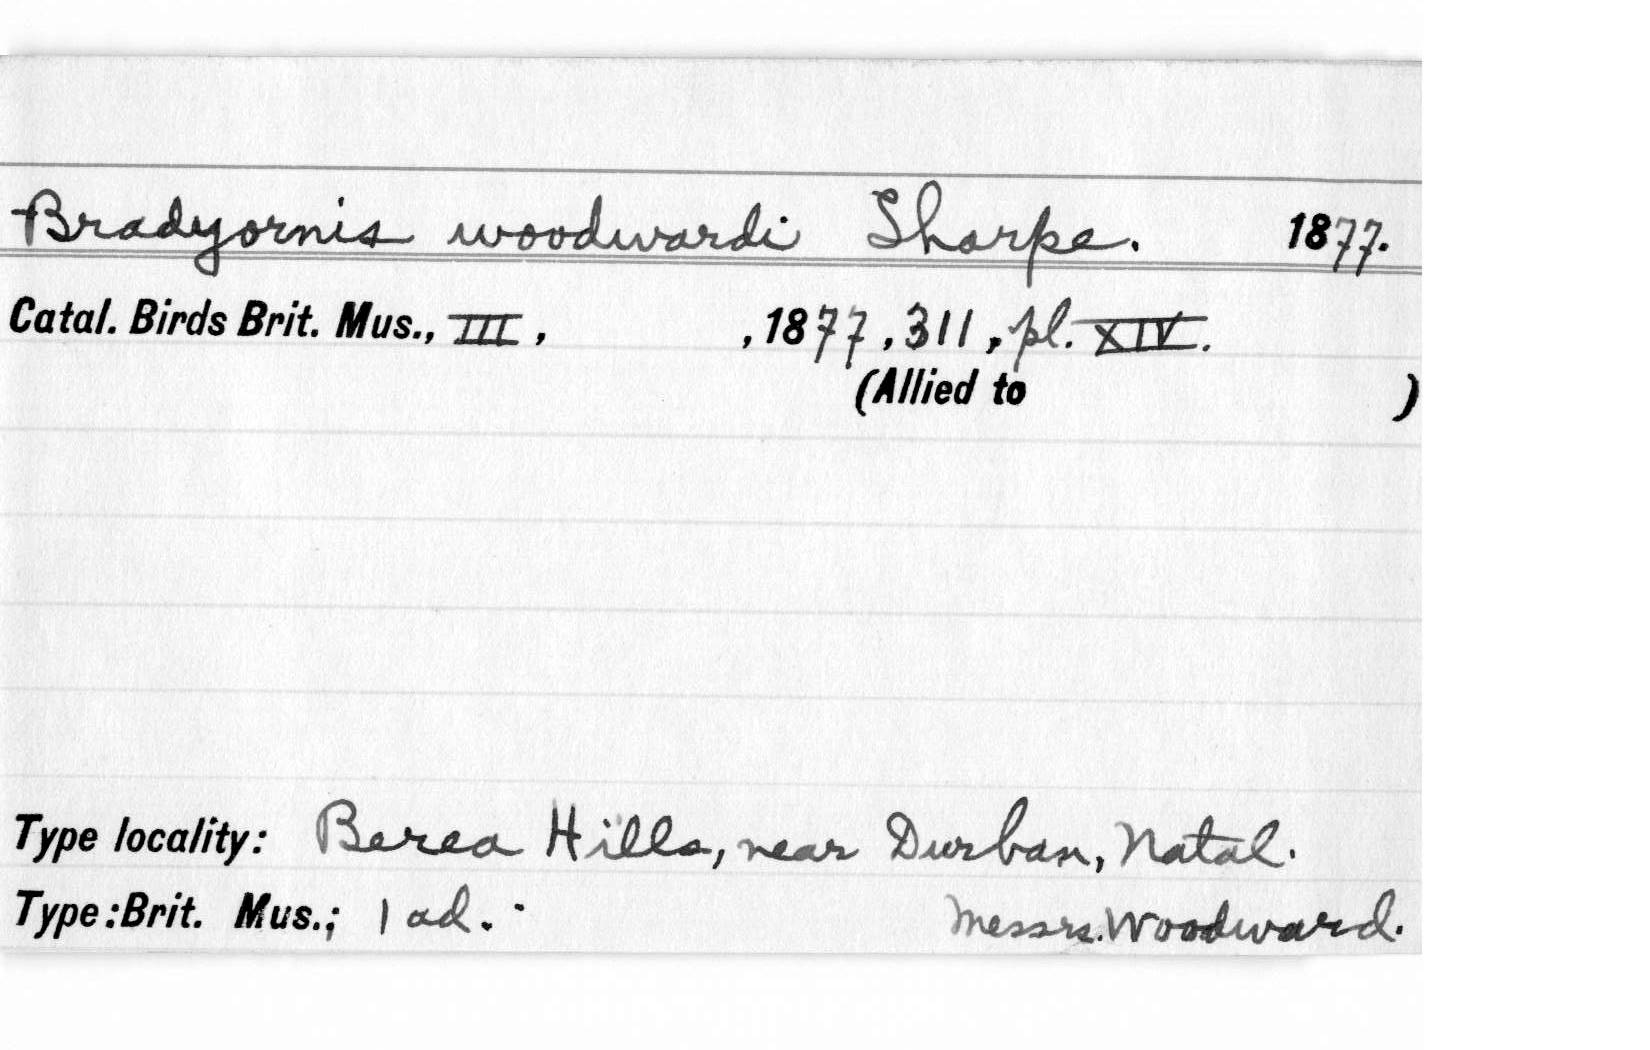 Bradyornis woodwardi Sharpe. 1877.
Catal. Birds Brit. Mus., III, , 1877, 311, pl. XIV.
(Allied to )
Type locality: Berea Hills, near Durban, Natal.
Type: Brit. Mus.; 1 ad. - Messrs. Woodward.